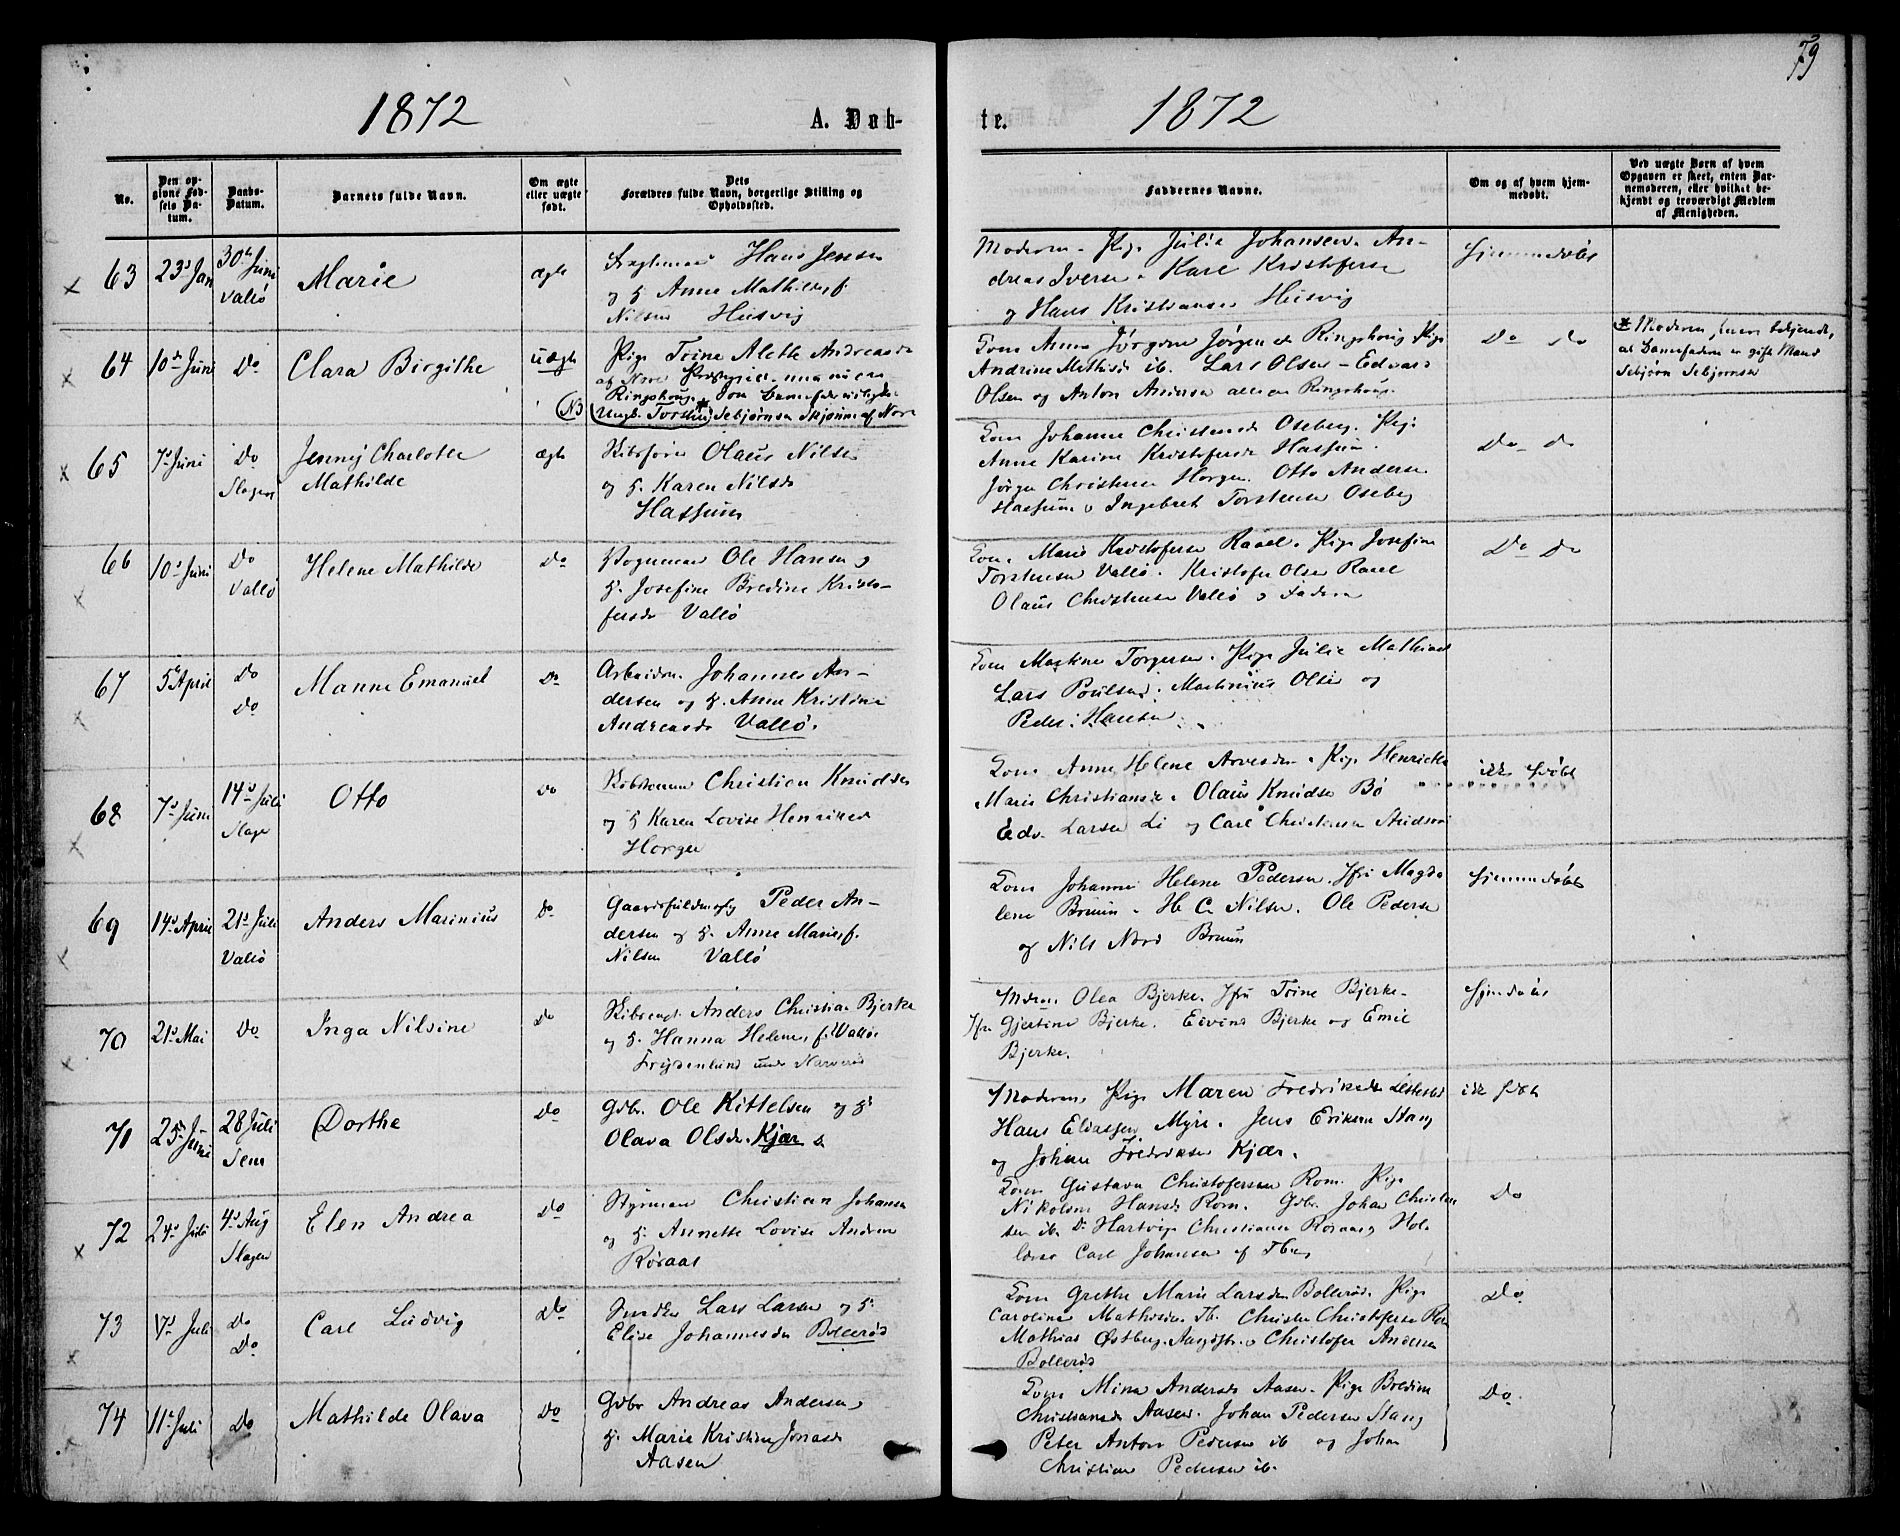 79
1872 A. Døb-
te. 1872
No.
Den op-
givne Fød-
sels Da-
tum.
Daabs-
Datum.
Barnets fulde Navn.
Om ægte
eller uægte
født.
Dets
Forældres fulde Navn, borgerlige Stilling og
Opholdssted.
Faddernes Navne.
Om og af hvem hjem-
medøbt.
Ved uægte Børn af hvem
Opgaven er skeet, enten Bar-
nemoderen, eller hvilket be-
kjendt og troværdigt Medlem
af Menigheden.
63 23d Jan 30te Juni
Vallø
Marie
ægte
Hans Jensen
og H. Anne Mathilde, f.
Nilsen Husvig
Moderen. Pige Julie Johansen. An-
dreas Iversen. Karl Kristofersen
og Hans Kristiansen Husvig
Hjemmedøbt
64 10de Juni Do
Clara Birgithe
uægte
Pige Trine Alette Andreasdr
Ringshoug. Som Barnefader
NB Ungk. Torsten Sebjørnsen Skjønne af Nøtt
Kone Anne Jørgine Jørgensdr Ringshoug Pige
Andrine Mathisdr ib. Lars Olsen - Edvard
Olsen og Anton Andersen alle en Ringshoug.
Do Do
* Moderen,
at Barnefaderen er gift Mand
Sebjørn Sebjørnsen
65 7d Juni Do
Slagen
Jennij Charlotte
Mathilde
ægte
Olaus Nilsen
og H. Karen Nilsdr
Hassum
Kone Johanne Christensdr Oseberg. Pige
Anne Karine Kristofersdr Hassum.
Jørgen Christensen Horgen. Otto Andersen
Hassum o Ingebret Torstensen Oseberg
Do Do
66 10d Juni Do
Vallø
Helene Mathilde
Do
Ole Hansen og
H. Josefine Bredine Kristo-
fersdr Vallø
Kone Marie Kristofersen Raael. Pige Josefine
Torstensen Vallø. Kristofer Olsen Raael
Olaus Christensen Vallø o Faderen
Do Do
67 5te April Do
Do
Manne Emanuel
Do
Arbeidsm. Johannes An-
dersen og H. Anne Kristine
Andreasdr Vallø.
Kone Martine Torgersen. Pige Julie Mathisdr
Lars Poulsen. Martinius Olsen og
Peder Hansen
68 7d Juni 14d Juli
Slagen
Otto
Do
Christian Knudsen
og H Karen Lovise Henriksdr
Horgen
Kone Anne Helene Arvesdr. Pige Henriette
Marie Christiansdr. Olaus Knudsen Bø
Edv. Larsen Li og Carl Christensen
ikke Hjdøbt
69 14d April 21d Juli
Vallø
Anders Marinius
Do
Peder An-
dersen og H. Anne Marie, f.
Nilsen Vallø
Kone Johanne Helene Pedersen. Jfru Magda
lene Bruun. H C Nilsen. Ole Pedersen
og Nils Bruun
Hjemmedøbt
70 21d Mai Do
Inga Nilsine
Do
Anders Christian Bjerke
og H. Hanna Helene, f. Wallø.
Frydenlund under Narverød
Moderen Olea Bjerke. Jfru Trine Bjerke.
Jfru Gjertine Bjerke. Eivind Bjerke og Emil
Bjerke.
Hjemdøbt
71 25de Juni 28 Juli
Sem
Dorthe
Do
Gdbr. Ole Kittelsen og H
Olava Olsdr. Kjær
Moderen. Pige Maren Fredriksdr
Hans Eliassen Myre. Jens Eriksen Stang
og Johan Fredriksen Kjær.
ikk Hjdøbt
72 24d Juli 4d Aug
Slagen
Elen Andrea
Do
Styrmand Christian Johansen
og H. Annette Lovise Andersen
Røraas
Kone Gustava Christofersen Rom. Pige
Nikoline Hansdr Rom. Gdbr. Johan Christen
sen ib. Do Hartvig Christiansen Røraas
Carl Johansen af Tbrg
Do
73 17d Juli Do
Do
Carl Ludvig
Do
Lars Larsen og H.
Elise Johannesdr Bollerød
Kone Grethe Marie Larsdr Bollerød. Pige
Caroline Mathisen Tb. Christen Christofersen
Mathias Østberg. o Christofer Andersen
Bollerød
Do
74 11te Juli Do
Mathilde Olava
Do
Gdbr Andreas Andersen,
H. Marie Kristine Jonasdr
Aasen
Kone Mina Andersdr Aasen. Pige Boldine
Christiansdr Aasen. Johan Pedersen Stang
Peter Anton Pedersen ib og Johan
Christian Pedersen ib.
Do.